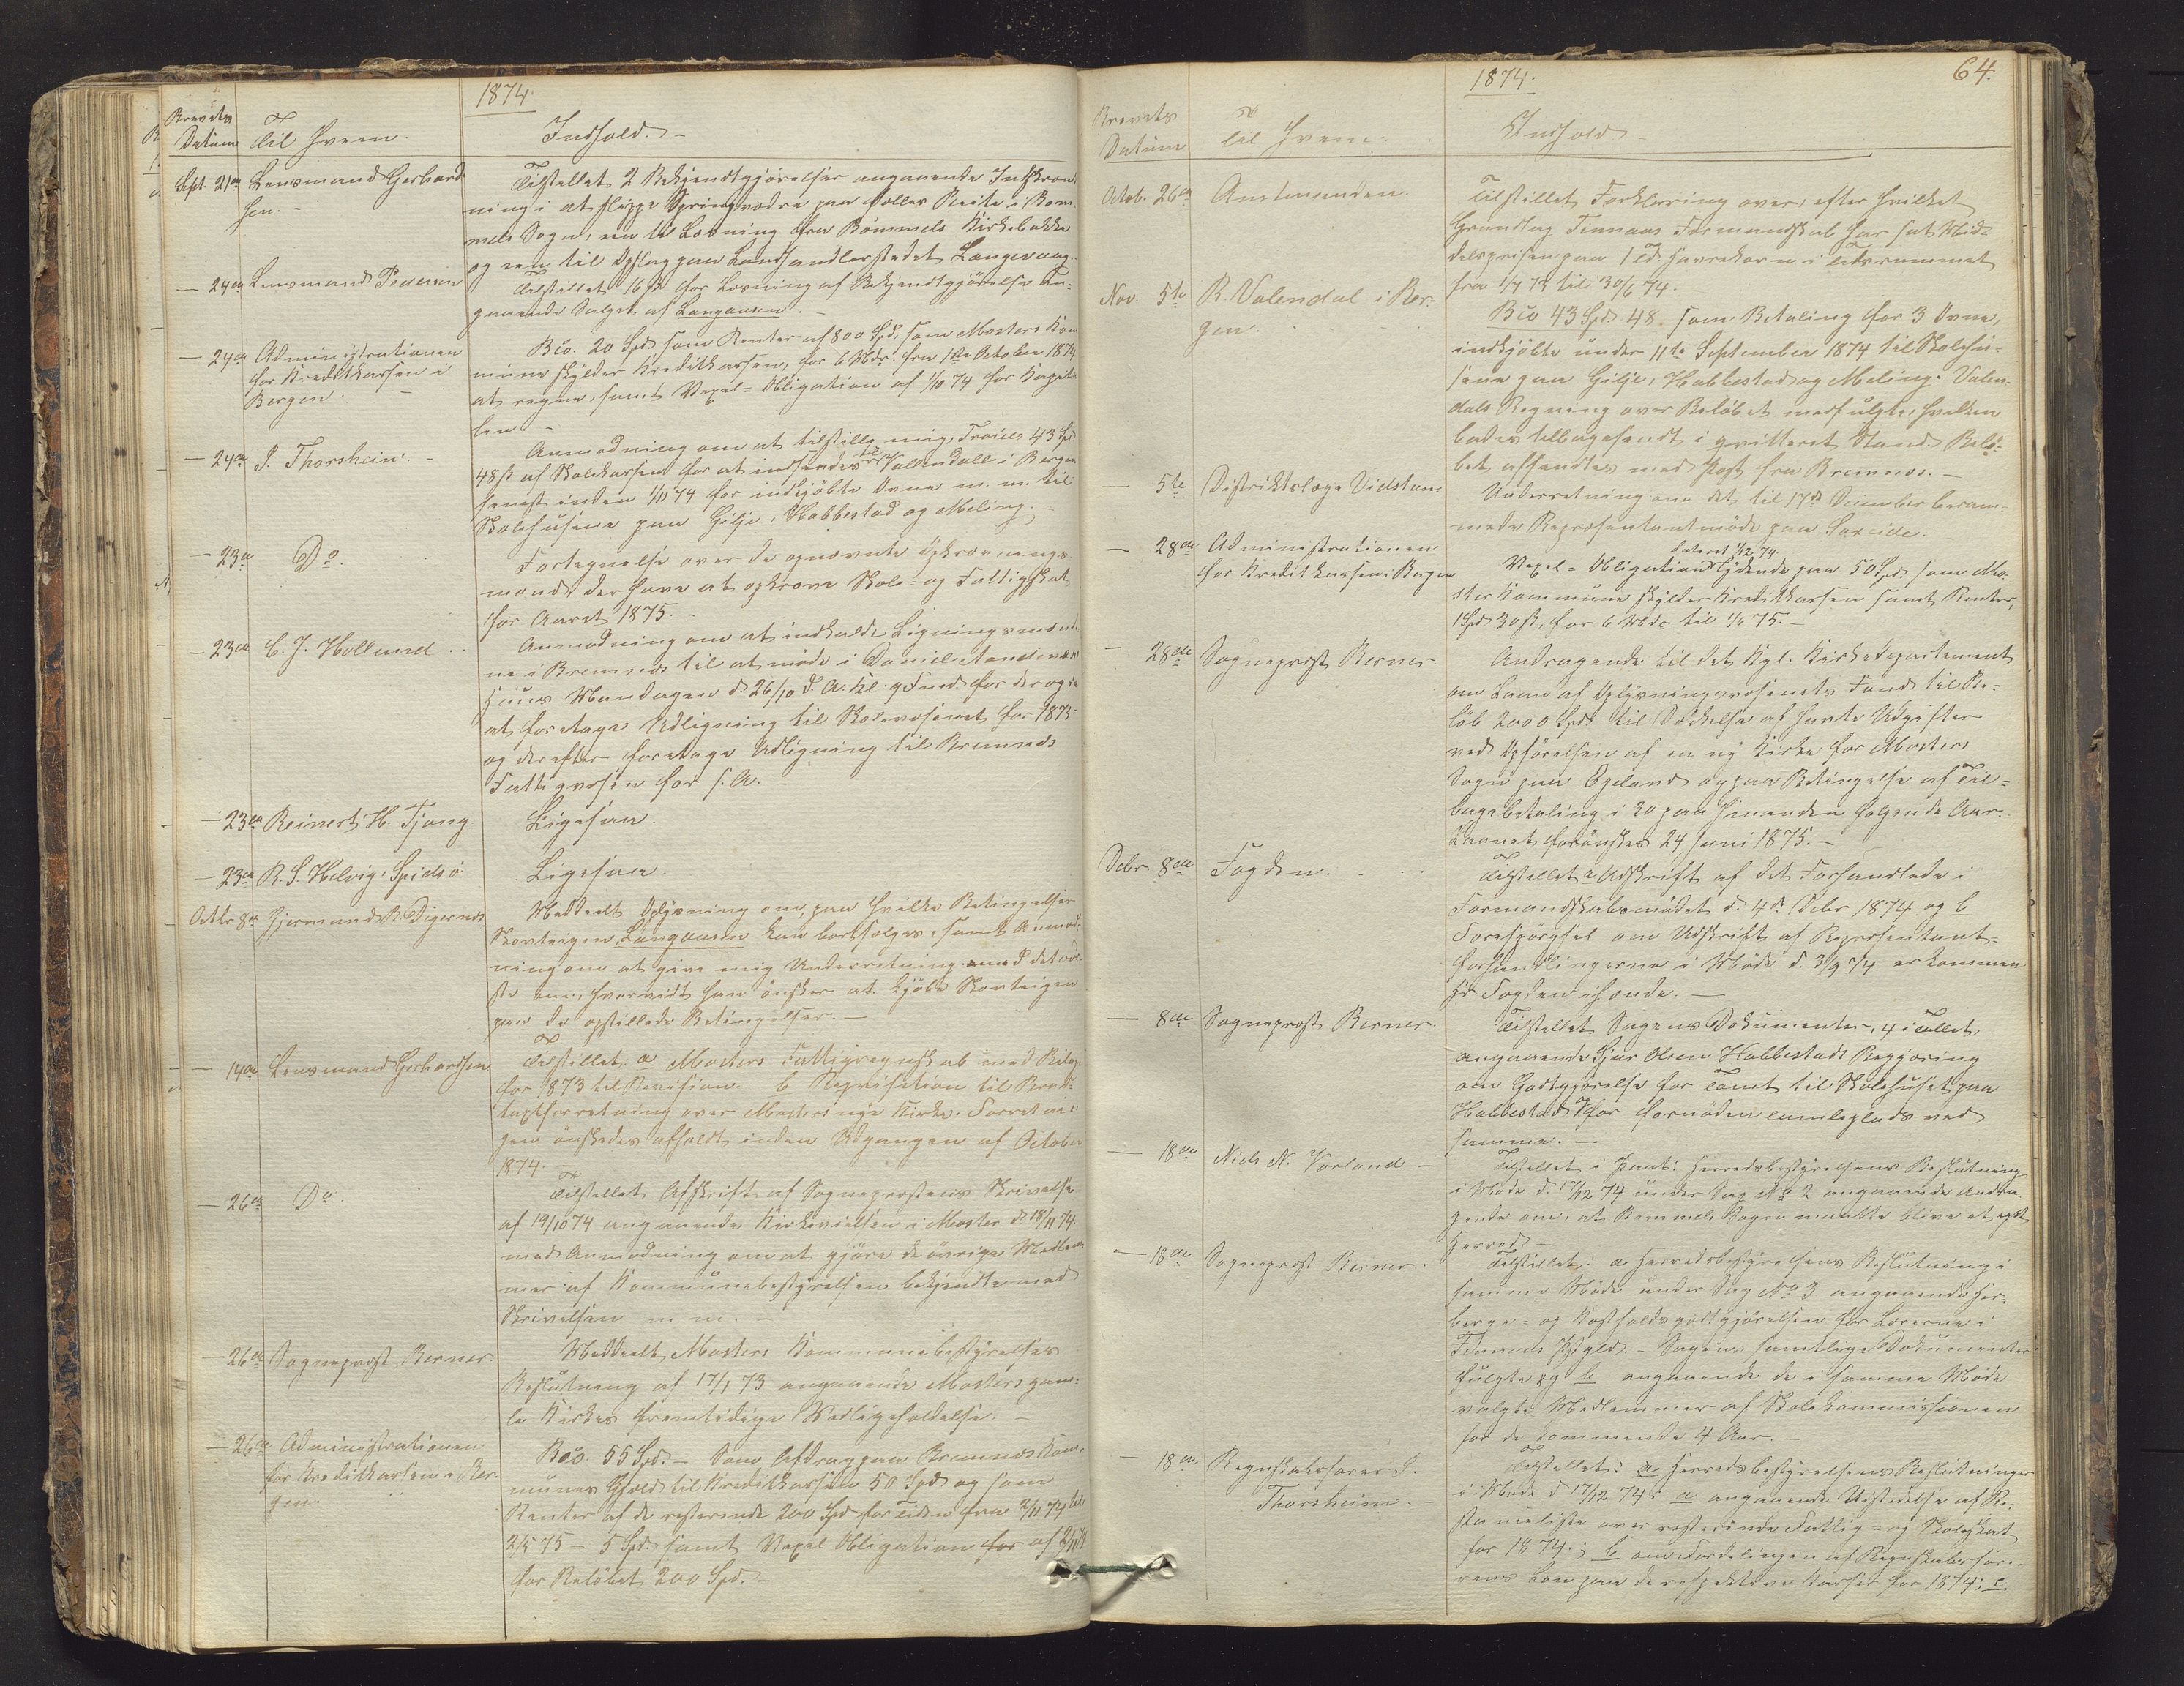 1874.
Brevets
Datum
Til Hvem.
Indhold. -
Sept. 21de
Lensmand Gerhard
sen. -
Tilstillet 2 Bekjendtgjørelser angaaende Indskræn
ning i at slippe Springvædre paa fælles Beite i Bøm
mels Sogn, een til Læsning fra Bømmels Kirkebakke
og een til Opslag paa Landhandlerstedet Langevaag.
- 24de
Lensmand Pedersen
Tilstillet 16 ß for Læsning af Bekjendtgjørelse an-
gaaende Salget af Langaasen. -
- 24de
Administrationen
for Kreditkassen i
Bergen. -
Bco. 20 Spd. som Renter af 800 Spd. som Mosters Kom
mune skylder Kreditkassen, for 6 Mdr. fra 1ste October 1874
at regne, samt Vexel-Obligation af 1/10 74 for Kapita
len. -
- 24de
J. Thorsheim. -
Anmodning om at tilstille mig 43 Spd
48 ß af Skolekassen for at indsendes til Valendall i Bergen
senest inden 1/11 74 for indkjøbte Ovne m. m. til
Skolehusene paa Gilje, Habbestad og Meling. -
- 23de
Do.
Fortegnelse over de opnævnte Opkrævnings
mænd, der have at opkræve Skole- og Fattigskat
for Aaret 1875. -
- 23de
C. J. Hollund
Anmodning om at indkalde Ligningsmænde
ne i Bremnes til at møde i Daniel
Huus Mandagen d. 26/10 d. A. Kl. 9 Fmd. for der og da
at foretage Udligning til Skolevæsenet for 1875
og derefter foretage Udligning til Bremnæs
Fattigvæsen for s. A. -
- 23de
Reinert H. Tjong
Ligesaa.
- 23de
R. S. Helvig. Spidsø
Ligesaa.
Octbr 8de
Hjermand R. Digernes
Meddeelt Oplysning om, paa hvilke Betingelser
Skovteigen Langaasen kan bortsælges, samt Anmod-
ning om at give mig Underretning med det før
ste om, hvorvidt han ønsker at kjøbe Skovteigen
paa de opstillede Betingelser. -
- 14de
Lensmand Gerhardsen
Tilstillet a Mosters Fattigregnskab med Bilage
for 1873 til Revision. b Reqvisition til Brand-
taxtforretning over Mosters nye Kirke. Forretnin-
gen ønskedes afholdt inden Udgangen af October
1874. -
- 26de
Do.
Tilstillet Afskrift af Sogneprestens Skrivelse
af 19/10 74 angaaende Kirkevielsen i Moster d. 18/11 74
med Anmodning om at gjøre de øvrige Medlem
mer af Kommunebestyrelsen bekjendte med
Skrivelsen m. m. -
- 26de
Sogneprest Berner.
Meddeelt Mosters Kommunebestyrelses
Beslutning af 17/1 73 angaaende Mosters gam-
le Kirkes fremtidige Vedligeholdelse. -
- 26de
Administrationen
for Kreditkassen i Ber-
gen.
Bco. 55 Spd. - Som Afdrag paa Bremnæs Kom-
munes Gjæld til Kreditkassen 50 Spd og som
Renter af de resterende 200 Spd for Tiden fra 2/11 74 til
2/5 75 - 5 Spd. samt Vexel Obligation for af 2/11 74
for Beløbet 200 Spd. -
1874.
64.
Brevets
Datum
Til Hvem.
Indhold -
Octob. 26de
Amtmanden.
Tilstillet Forklaring over, efter hvilket
Grundlag Finnaas Formandskab har sat Mid-
delprisen paa 1 Td. Havrekorn i Tidsrummet
fra 1/7 73 til 30/6 74. -
Nov. 5te
R. Valendal i Ber-
gen.
Bco 43 Spd. 48. som Betaling for 3 Ovne,
indkjøbte under 11te September 1874 til Skolehu-
sene paa Gilje, Habbestad og Meling. Valen-
dals Regning over Beløbet medfulgte, hvilken
bades tilbagesendt i qvitteret Stand. Belø-
bet afsendtes med Post fra Bremnes. -
- 5te
Distriktslæge Vidsten.
Underretning om det til 17de December beram-
mede Repræsentantmøde paa Søreide. -
- 28de
Administrationen
for Kreditkassen i Bergen
dateret 1/12 74
Vexel-Obligation lydende paa 50 Spd. som Mo-
sters Kommune skylder Kreditkassen samt Renter,
1 Spd. 30 ß, for 6 Mdr. til 1/6 75. -
- 28de
Sogneprest Berner.
Andragende til det Kgl. Kirkedepartement
om Laan af Oplysningsvæsenets Fond til Be-
løb 2000 Spd. til Dækkelse af havte Udgifter
ved Opførelsen af en ny Kirke for Mosters
Sogn paa Egeland og paa Betingelse af Til-
bagebetaling i 30 paa hinanden følgende Aar.
Laanet forønskes 24 Juni 1875. -
Debr. 8de
Fogden.
Tilstillet a Udskrift af det Forhandlede i
Formandskabsmødet d. 4de Debr 1874 og b
Forespørgsel om Udskrift af Repræsentant-
forhandlingerne i Møde d. 3/9 74 er kommen
Hr. Fogden ihænde. -
- 8de
Sogneprest Berner.
Tilstillet Sagens Dokumenter, 4 i Tallet,
angaaende Sjur Olsen Habbestads Begjæring
om Godtgjørelse for Tomt til Skolehuset paa
Habbestad og for fornøden plads ved
samme. -
- 18de
Niels N. Vorland -
Tilstillet Herredsbestyrelsens Beslutning
i Møde d. 17/12 74 under Sag No 2 angaaende Andra-
gende om, at Bømmels Sogn maatte blive et eget
Herred. -
- 18de
Sogneprest Berner.
Tilstillet: a Herredsbestyrelsens Beslutning i
samme Møde under Sag No 3 angaaende Her-
berge- og Kostholdsgodtgjørelsen for Lærerne i
Finnaas Prgld. - Sagens samtlige Dokumenter
fulgte og b angaaende de i samme Møde
valgte Medlemmer af Skolekommissionen
for de kommende 4 Aar. -
- 18de
Regnskabsfører J.
Thorsheim. -
Tilstillet: Herredsbestyrelsens Beslutninger
i Møde d 17/12 74: a angaaende Udstedelse af Re-
stanceliste over resterende Fattig- og Skoleskat
for 1874.; b om Fordelingen af Regnskabsføre-
rens Løn paa de respektive Kasser for 1874; c